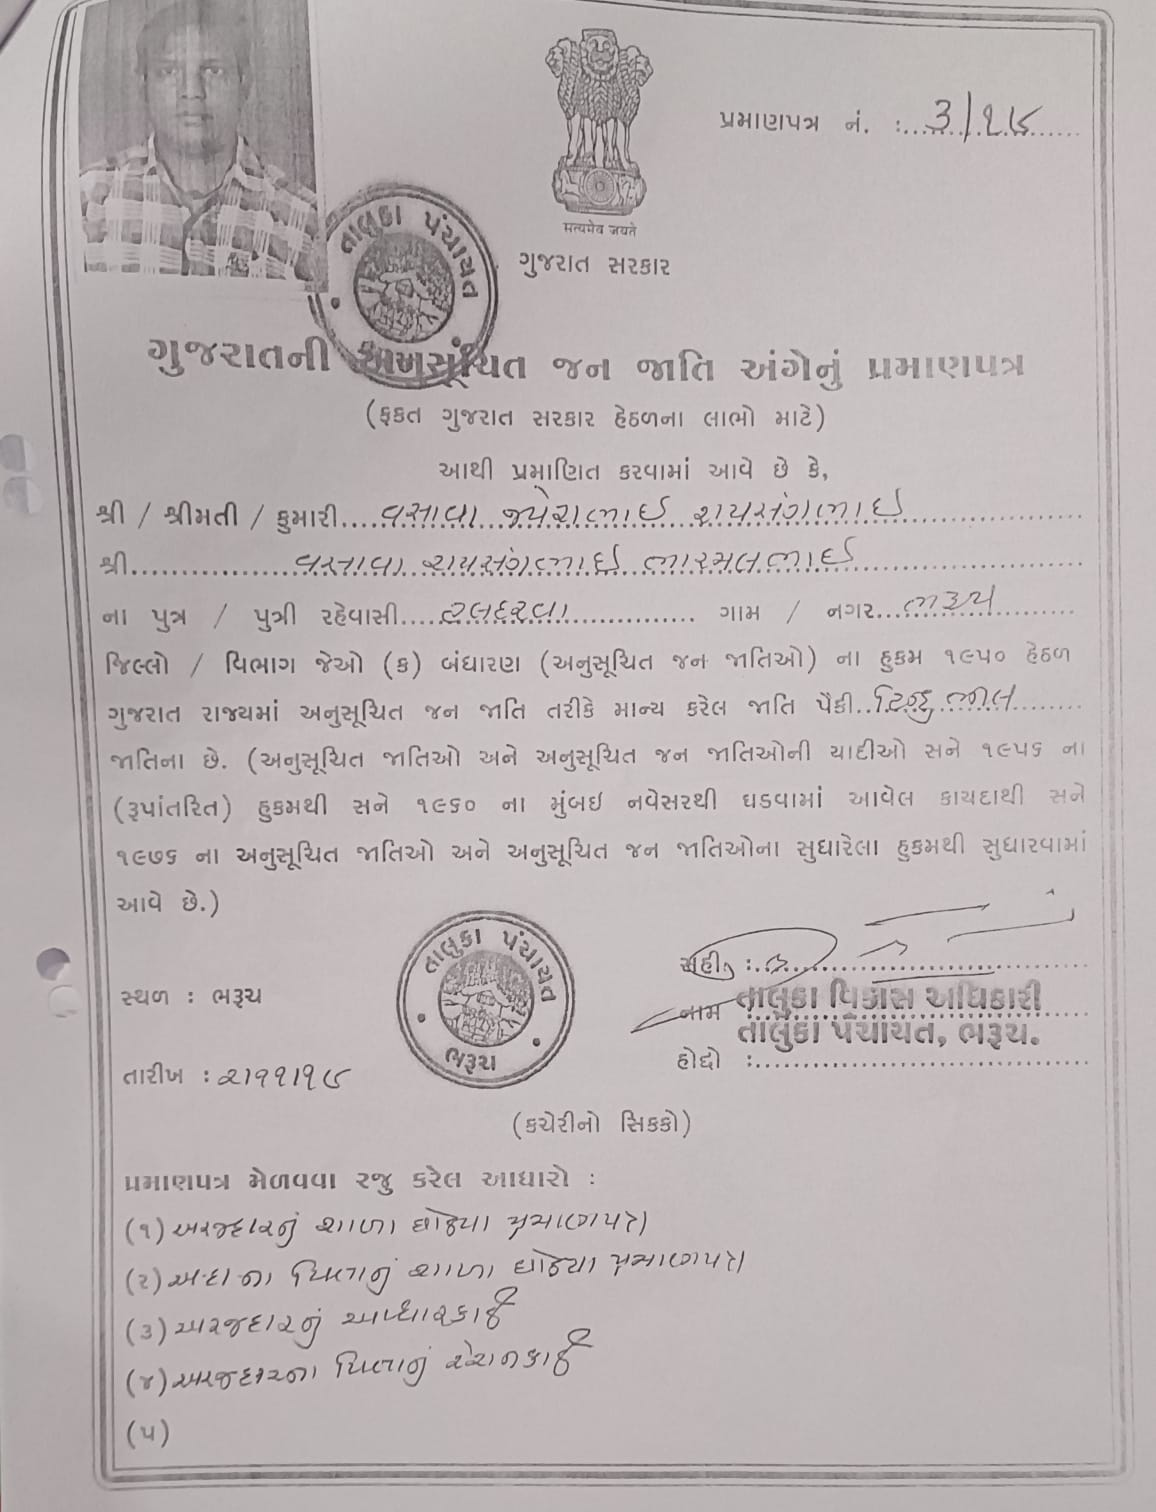 પ્રમાણપત્ર નં. : 3/૧૫
सत्यमेव जयते
ગુજરાત સરકાર
તાલુકા પંચાયત
ગુજરાતની અનુસૂચિત જન જાતિ અંગેનું પ્રમાણપત્ર
(ફકત ગુજરાત સરકાર હેઠળના લાભો માટે)
આથી પ્રમાણિત કરવામાં આવે છે કે,
શ્રી / શ્રીમતી / કુમારી.... વસાવા જયેશભાઈ રાયસંગભાઈ
શ્રી.... વસાવા રાયસંગભાઈ ભારમલભાઈ
ના પુત્ર / પુત્રી રહેવાસી.... હલદરવા .... ગામ / નગર.... ભરૂચ
જિલ્લો / વિભાગ જેઓ (ક) બંધારણ (અનુસૂચિત જન જાતિઓ) ના હુકમ ૧૯૫૦ હેઠળ
ગુજરાત રાજ્યમાં અનુસૂચિત જન જાતિ તરીકે માન્ય કરેલ જાતિ પૈકી.. હિન્દુ ભીલ
જાતિના છે. (અનુસૂચિત જાતિઓ અને અનુસૂચિત જન જાતિઓની યાદીઓ સને ૧૯૫૬ ના
(રૂપાંતરિત) હુકમથી સને ૧૯૬૦ ના મુંબઇ નવેસરથી ઘડવામાં આવેલ કાયદાથી સને
૧૯૭૬ ના અનુસૂચિત જાતિઓ અને અનુસૂચિત જન જાતિઓના સુધારેલા હુકમથી સુધારવામાં
આવે છે.)
તાલુકા પંચાયત ભરૂચ
સહી :
સ્થળ : ભરૂચ
નામ તાલુકા વિકાસ અધિકારી
તાલુકા પંચાયત, ભરૂચ.
હોદ્દો :
તારીખ : ૨૧૧૧૫
(કચેરીનો સિકકો)
પ્રમાણપત્ર મેળવવા રજુ કરેલ આધારો :
(૧) અરજદારનું શાળા છોડયા પ્રમાણપત્ર
(૨) અ.દા.ના પિતાનું શાળા છોડયા પ્રમાણપત્ર
(૩) અરજદારનું આધારકાર્ડ
(૪) અરજદારના પિતાનું રેશનકાર્ડ
(૫)